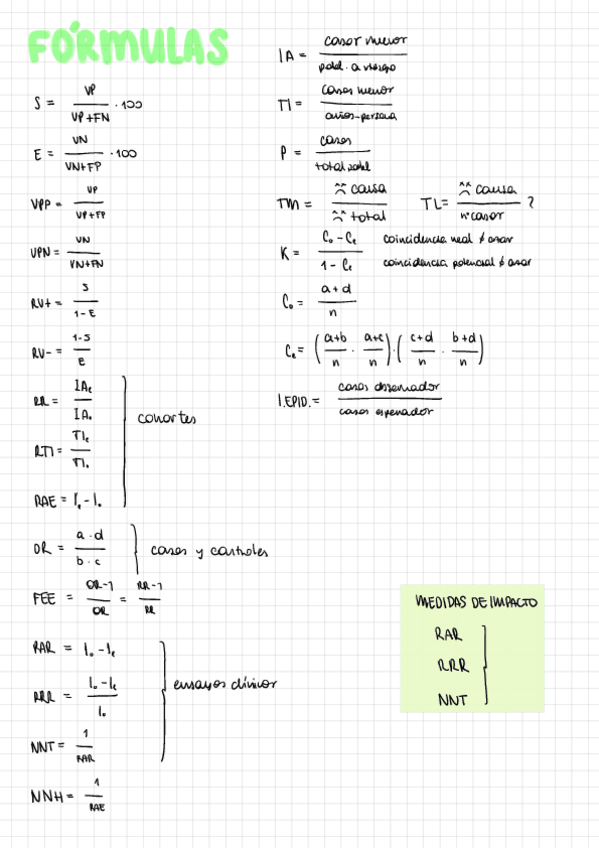 FÓRMULAS
S = VP / VP+FN · 100
E = VN / VN+FP · 100
VPP = VP / VP+FP
VPN = VN / VN+FN
RV+ = S / 1-E
RV- = 1-S / E
RR = IAe / IA₀
RTI = TIe / TI₀
RAE = Ie - I₀
cohortes
OR = a·d / b·c
casos y controles
FEE = OR-1 / OR = RR-1 / RR
RAR = I₀-Ie
RRR = I₀-Ie / I₀
ensayos clínicos
NNT = 1 / RAR
NNH = 1 / RAE
IA = casos nuevos / pobl. a riesgo
TI = casos nuevos / años-persona
P = casos / total pobl
TM = causa / total
TL = causa / nº casos ?
K = Co-Ce / 1-Ce
coincidencia real ≠ azar
coincidencia potencial ≠ azar
Co = a+d / n
Ce = (a+b / n · a+c / n)·(c+d / n · b+d / n)
I.EPID. = casos observados / casos esperados
MEDIDAS DE IMPACTO
RAR
RRR
NNT